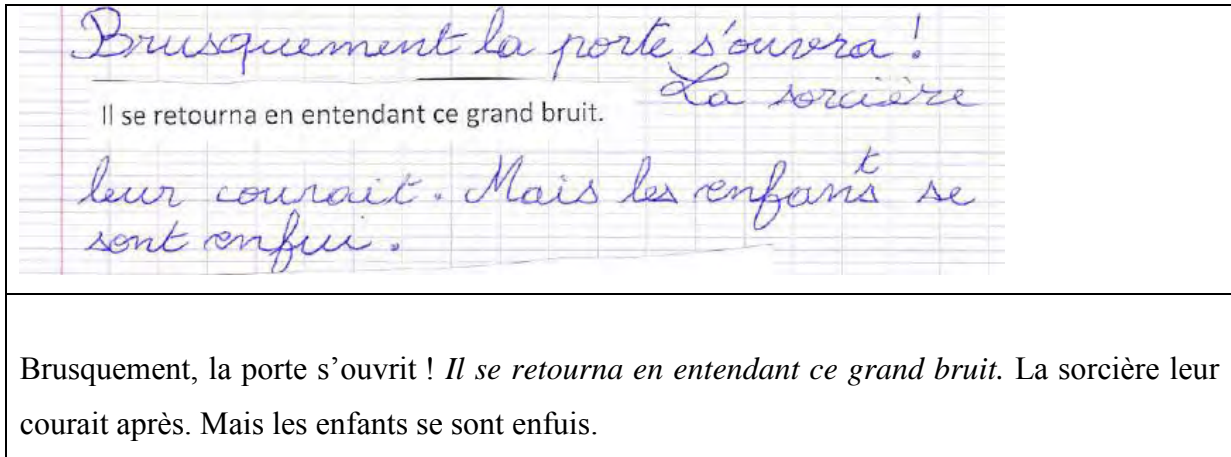 Brusquement la porte s'ouvra !
Il se retourna en entendant ce grand bruit.
La sorcière
leur courait. Mais les enfants se
sont enfui.
Brusquement, la porte s’ouvrit ! Il se retourna en entendant ce grand bruit. La sorcière leur
courait après. Mais les enfants se sont enfuis.